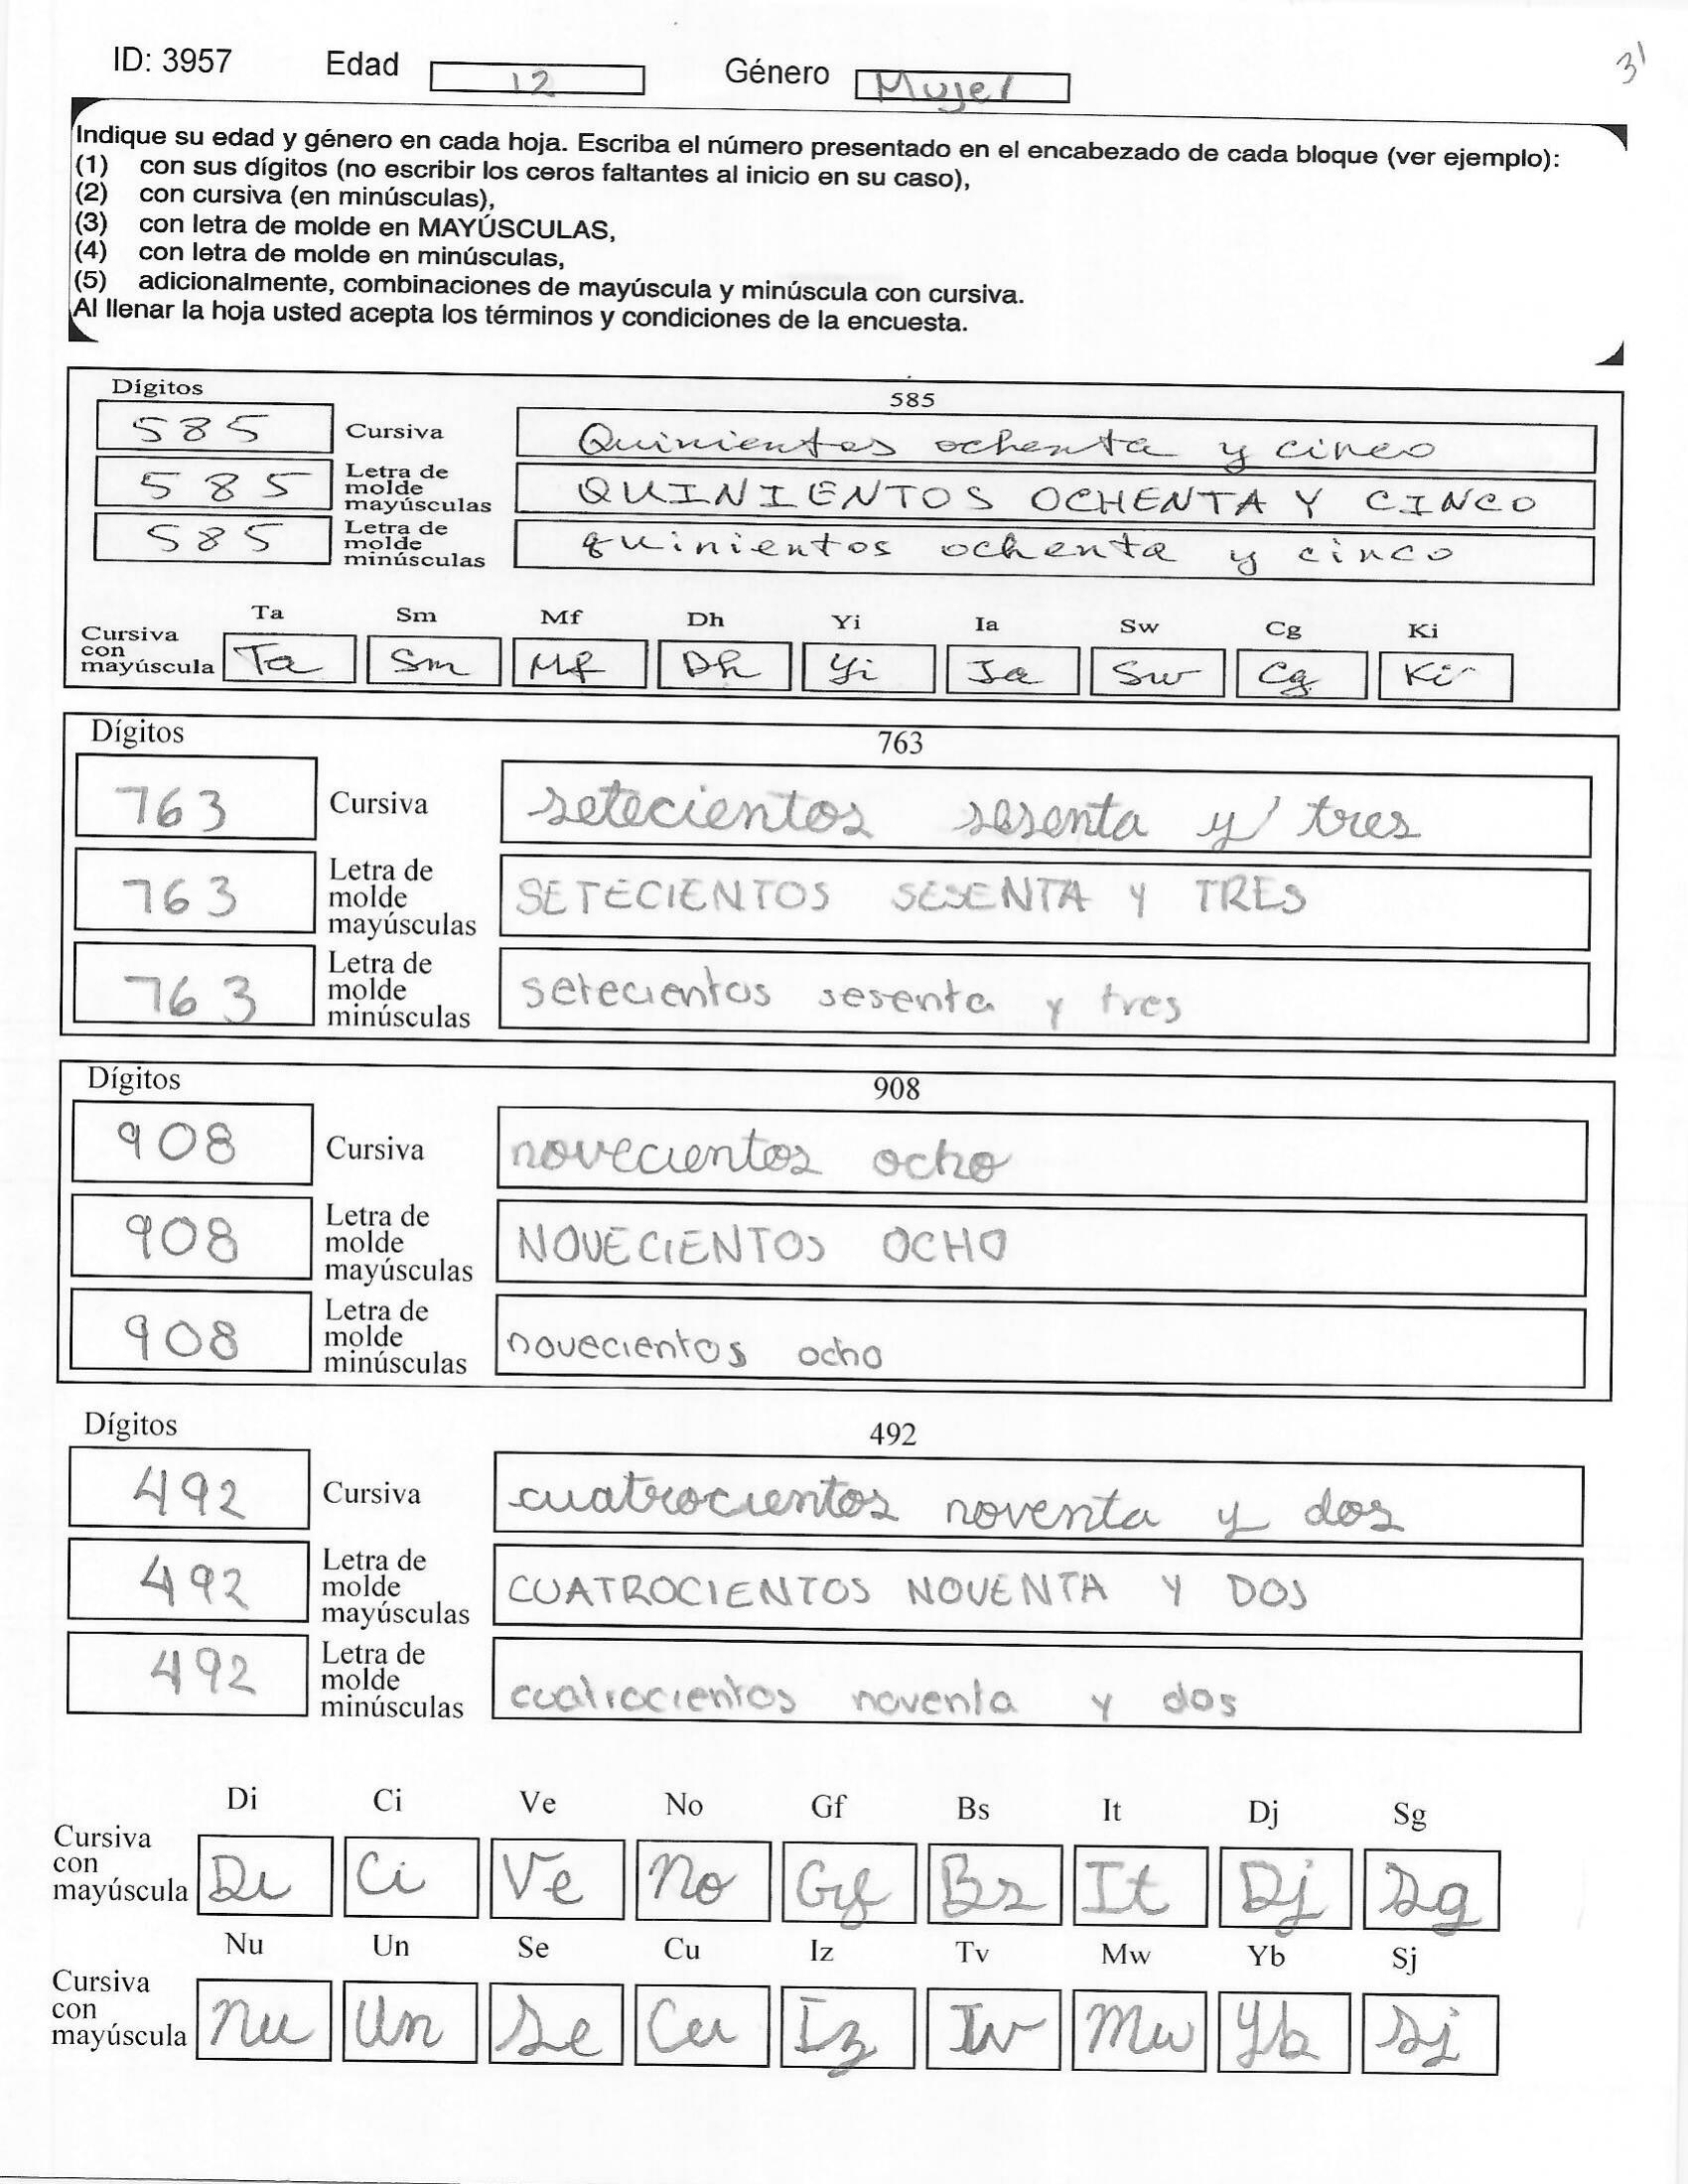 ID: 3957 Edad 12 Género Mujer 31
Indique su edad y género en cada hoja. Escriba el número presentado en el encabezado de cada bloque (ver ejemplo):
(1) con sus dígitos (no escribir los ceros faltantes al inicio en su caso),
(2) con cursiva (en minúsculas),
(3) con letra de molde en MAYÚSCULAS,
(4) con letra de molde en minúsculas,
(5) adicionalmente, combinaciones de mayúscula y minúscula con cursiva.
Al llenar la hoja usted acepta los términos y condiciones de la encuesta.
Dígitos 585
585 Cursiva Quinientos ochenta y cinco
585 Letra de molde mayúsculas QUINIENTOS OCHENTA Y CINCO
585 Letra de molde minúsculas quinientos ochenta y cinco
Ta Sm Mf Dh Yi Ia Sw Cg Ki
Cursiva con mayúscula Ta Sm Mf Dh Yi Ia Sw Cg Ki
Dígitos 763
763 Cursiva setecientos sesenta y tres
763 Letra de molde mayúsculas SETECIENTOS SESENTA Y TRES
763 Letra de molde minúsculas setecientos sesenta y tres
Dígitos 908
908 Cursiva novecientos ocho
908 Letra de molde mayúsculas NOVECIENTOS OCHO
908 Letra de molde minúsculas novecientos ocho
Dígitos 492
492 Cursiva cuatrocientos noventa y dos
492 Letra de molde mayúsculas CUATROCIENTOS NOVENTA Y DOS
492 Letra de molde minúsculas cuatrocientos noventa y dos
Di Ci Ve No Gf Bs It Dj Sg
Cursiva con mayúscula Di Ci Ve No Gf Bs It Dj Sg
Nu Un Se Cu Iz Tv Mw Yb Sj
Cursiva con mayúscula Nu Un Se Cu Iz Tv Mw Yb Sj